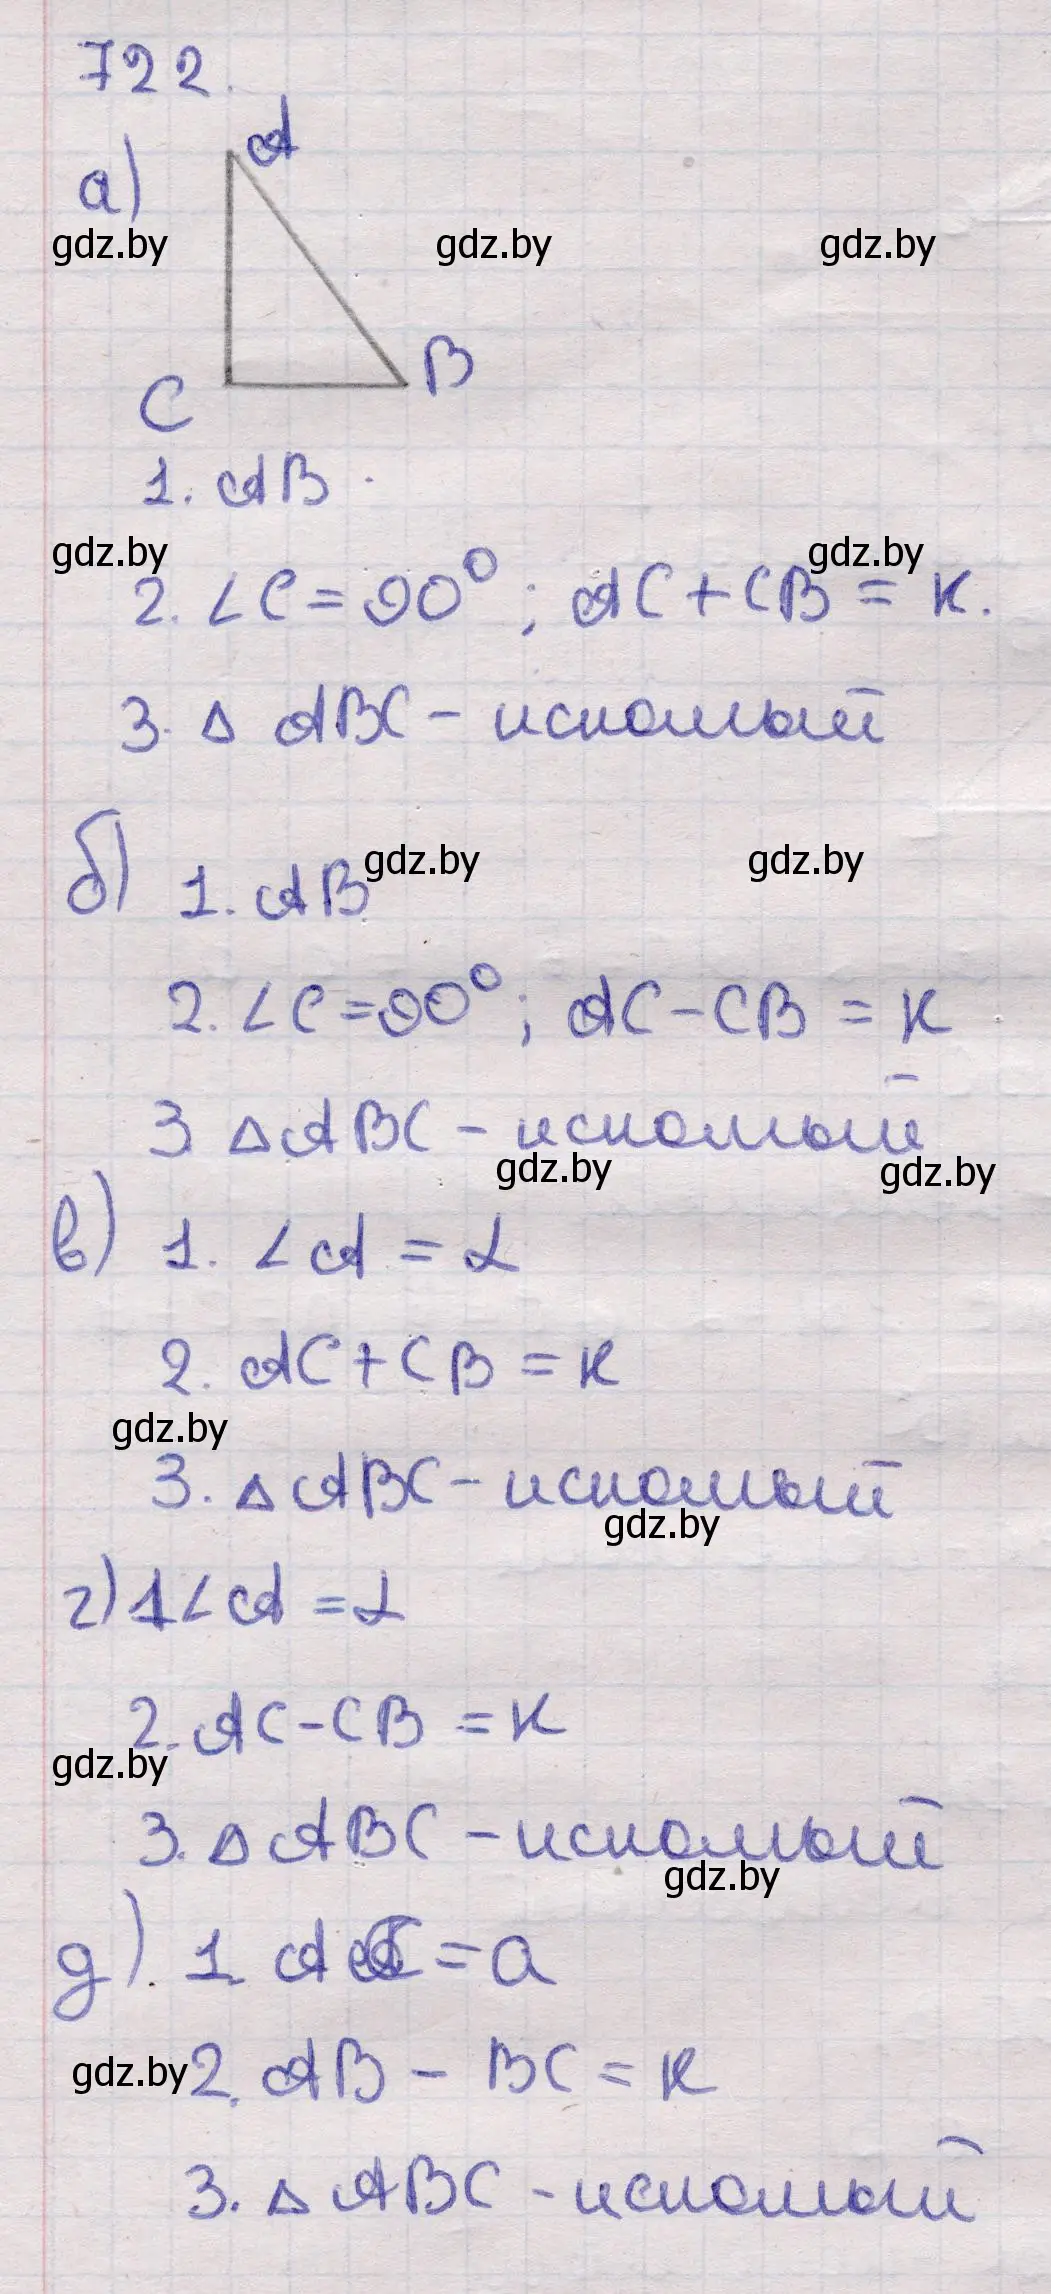 722.
а)
A
gdz.by gdz.by gdz.by
B
C
1. AB.
gdz.by gdz.by
2. ∠C = 90°; AC + CB = к.
3. Δ ABC – искомый
б) 1. AB
gdz.by gdz.by
2. ∠C = 90°; AC – CB = к
3 Δ ABC – искомый
gdz.by gdz.by
в) 1. ∠A = α
2. AC + CB = к
gdz.by
3. Δ ABC – искомый
gdz.by
г) 1 ∠A = α
2. AC – CB = к
gdz.by
3. Δ ABC – искомый
gdz.by
д). 1. AC = a
gdz.by
2. AB – BC = к
3. Δ ABC – искомый